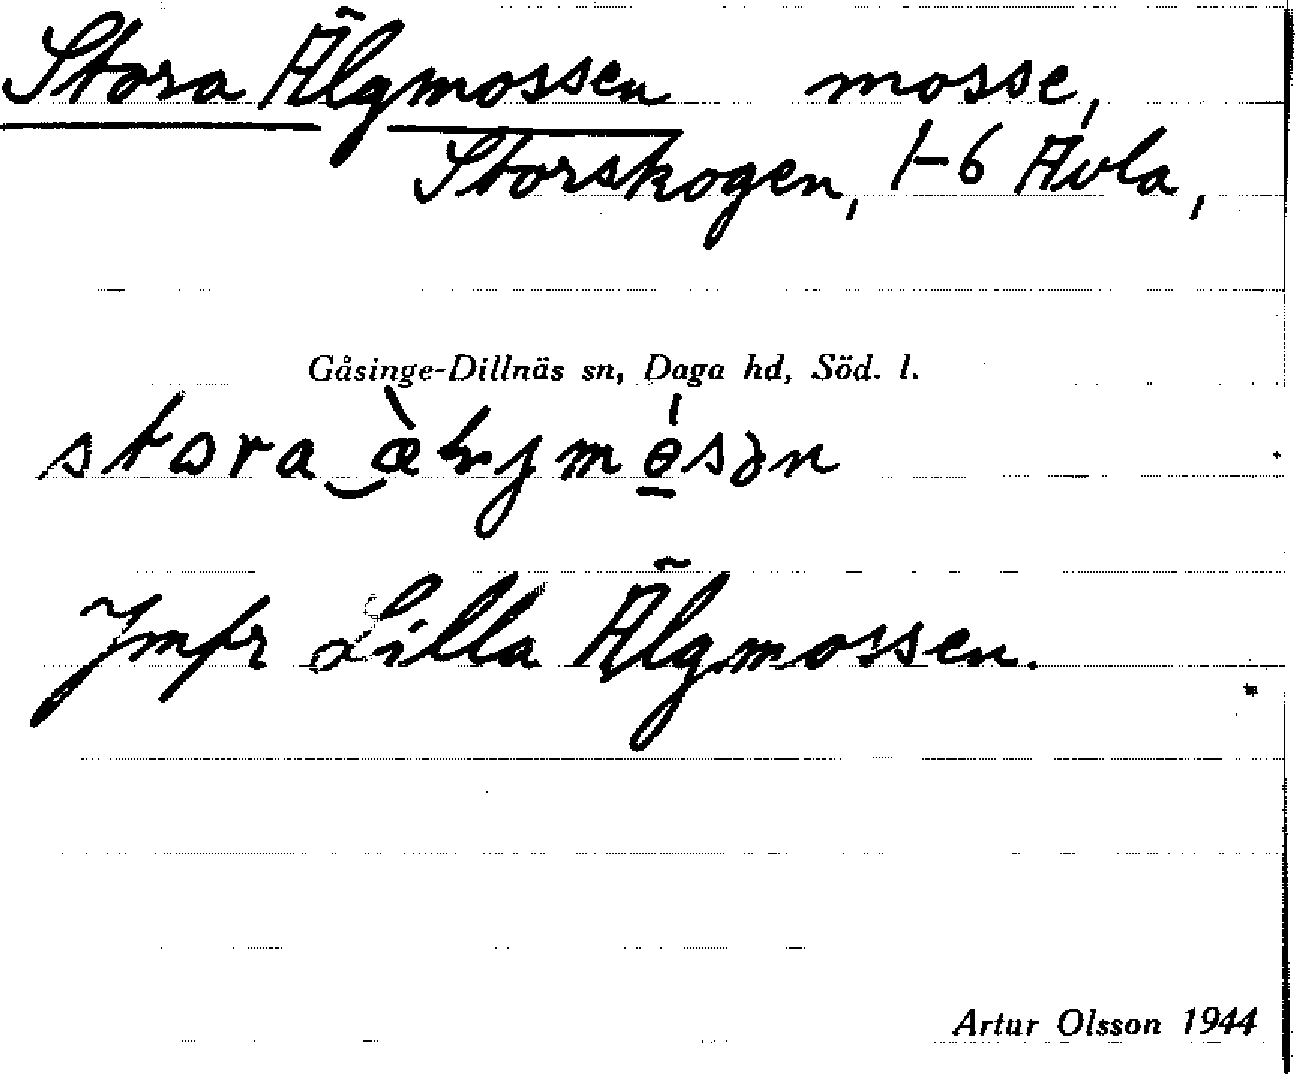 Stora Älgmossen mosse,
Storskogen, 1-6 Avla,
Gåsinge-Dillnäs sn, Daga hd, Söd. l.
stora
Jmfr Lilla Älgmossen.
Artur Olsson 1944